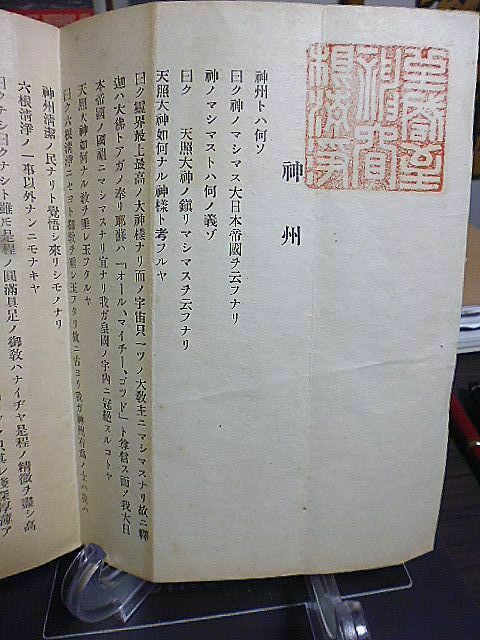 神州
神州トハ何ソ
曰ク神ノマシマス大日本帝國ヲ云フナリ
神ノマシマストハ何ノ義ゾ
曰ク　天照大神ノ鎭リマシマスヲ云フナリ
天照大神如何ナル神様ト考フルヤ
曰ク靈界最上最高ノ大神様ナリ而ノ宇宙只一ツノ大敎主ニマシマスナリ故ニ釋
迦ハ大佛トアガメ奉リ耶蘇ハ「オール、マイチー、ゴッド」ト尊信ス而ノ我大日
本帝國ノ國祖ニマシマスナリ宜ナリ我ガ皇國ノ宇内ニ冠絶スルコトヤ
天照大神如何ナル御敎ヲ垂レ玉フタルヤ
曰ク六根淸淨ニセヨト御敎ヲ垂レ玉フタリ故ニ古ヨリ我ガ神州有爲ノ士ハ我ハ
神州淸潔ノ民ナリト覺悟シ來リシモノナリ
六根淸淨ノ一事以外ナンニモナキヤ
曰クナシ曰クナシト雖モ是程ノ圓滿具足ノ御敎ハナイヂヤ是程ノ精微ヲ盡シ高